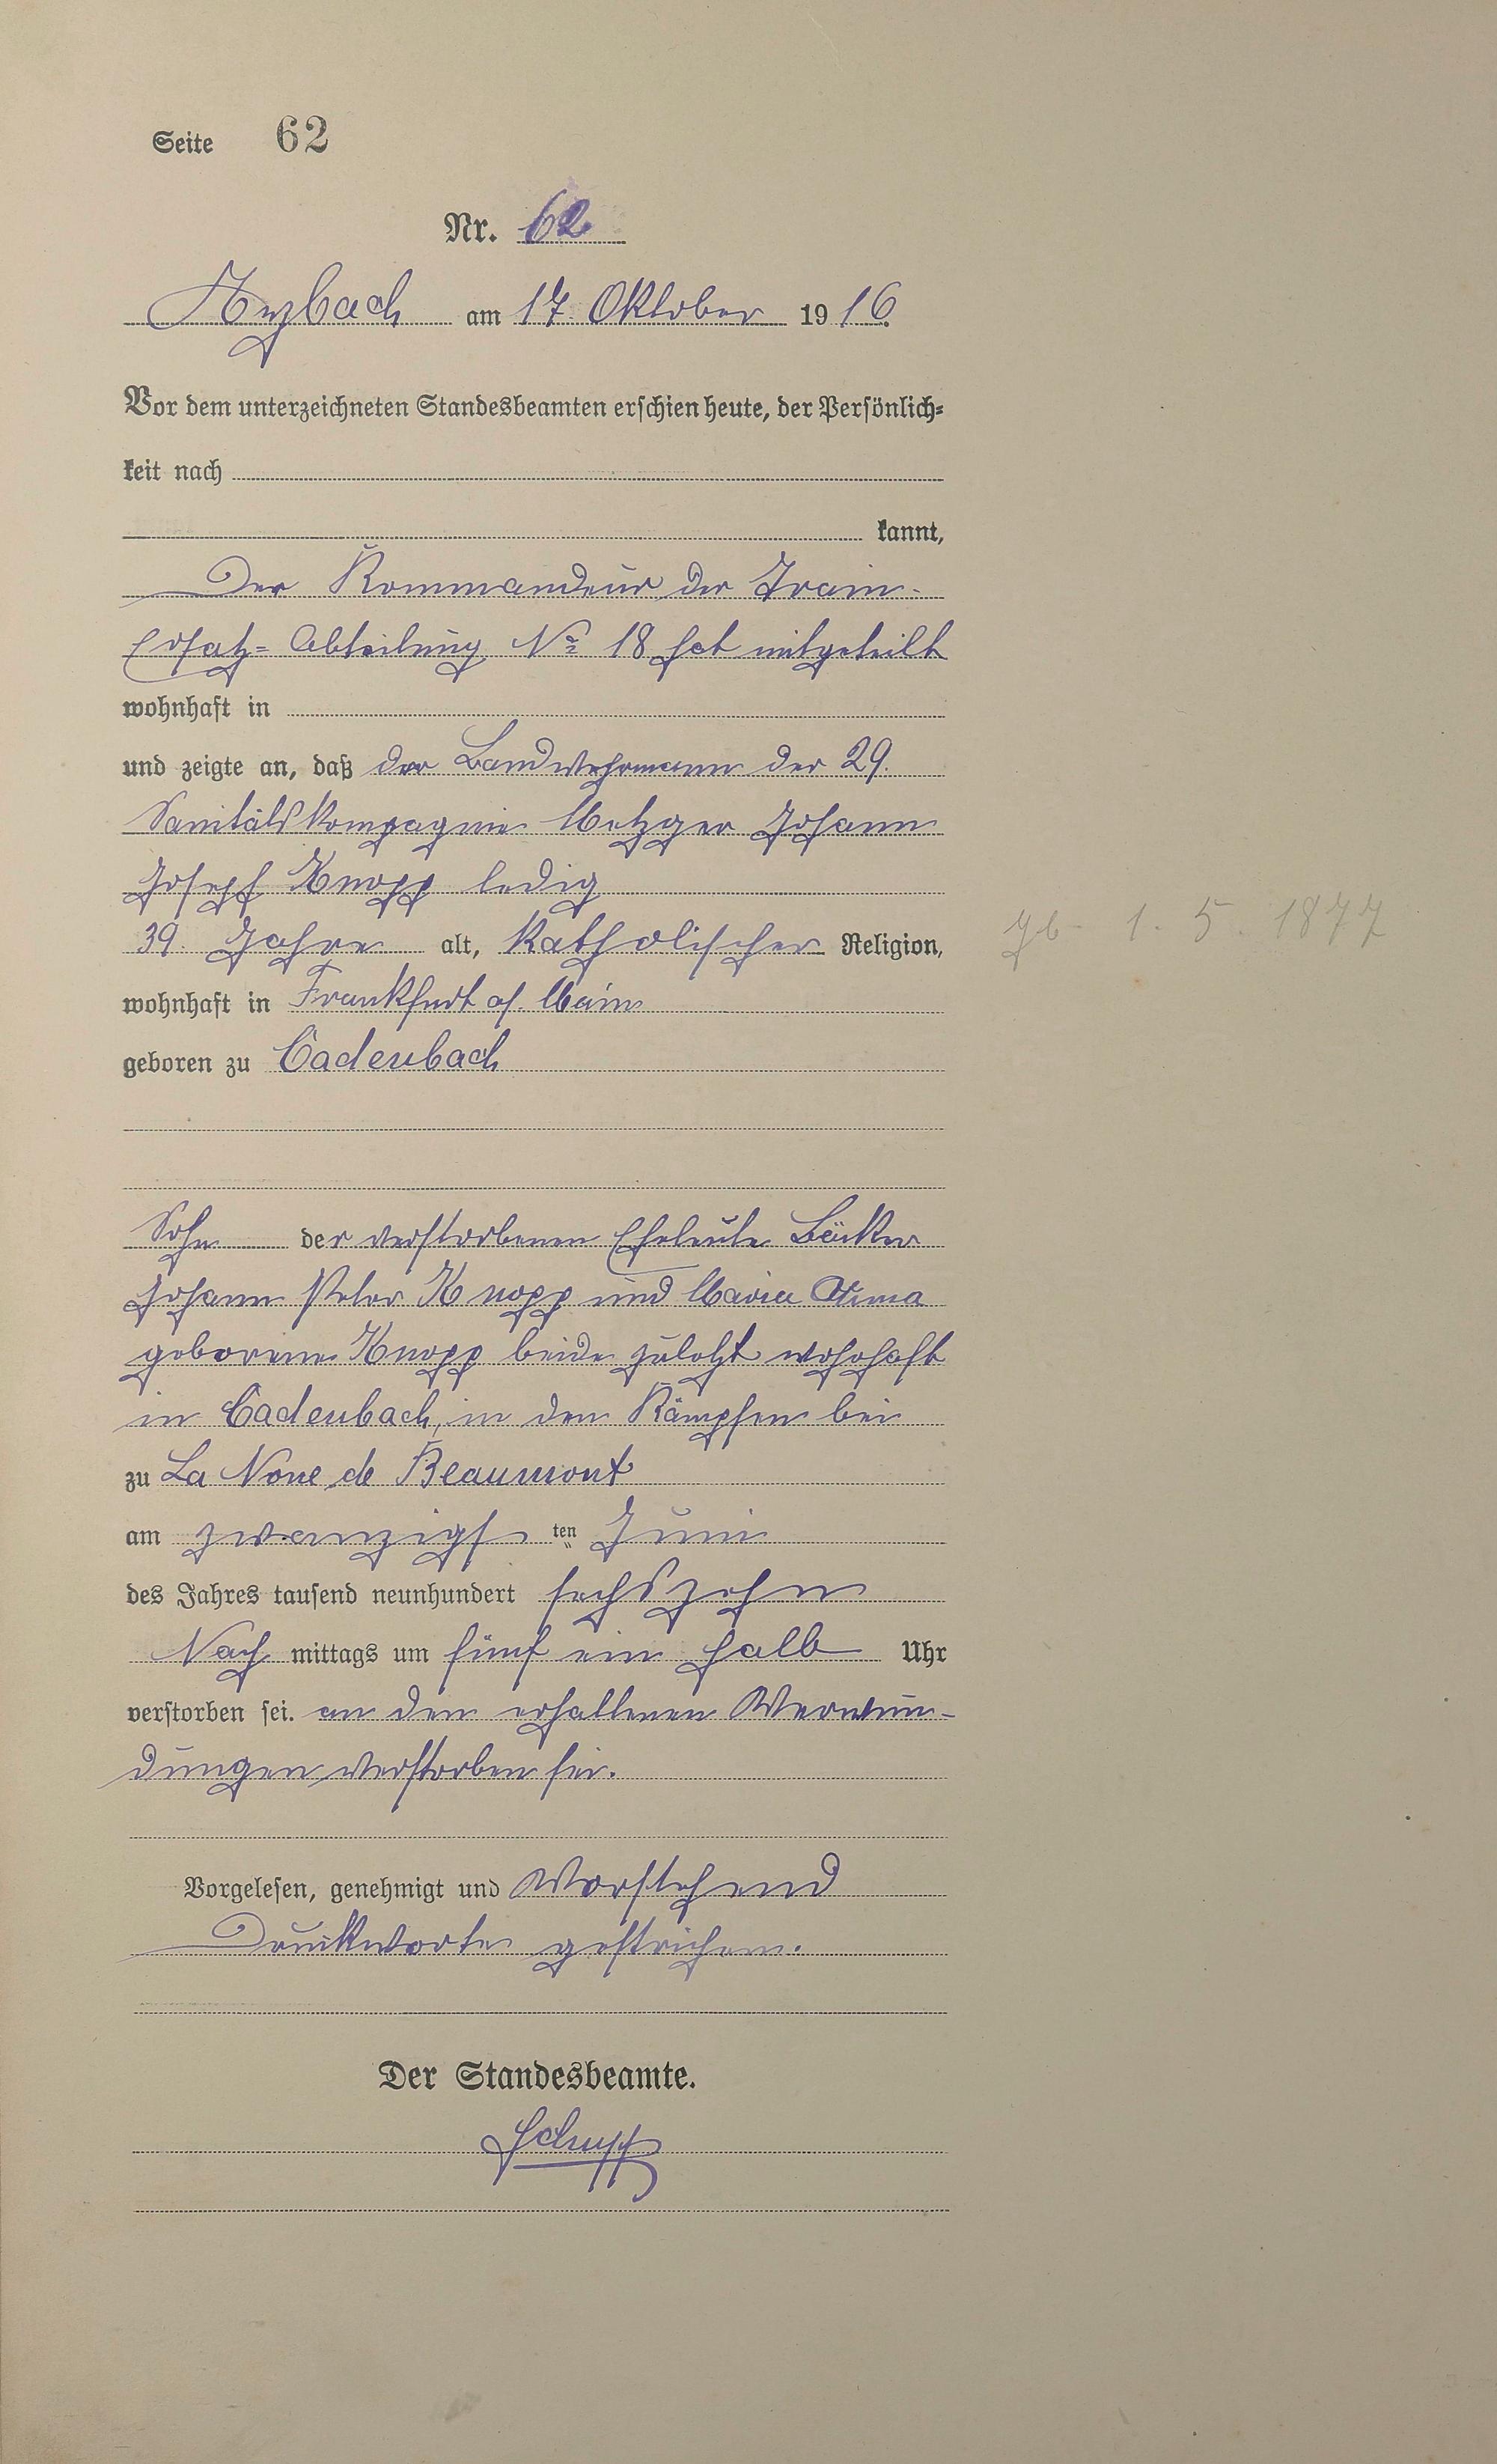 Seite 62
Nr. 62
Arzbach am 17. Oktober 1916.
Vor dem unterzeichneten Standesbeamten erschien heute, der Persönlich-
keit nach
kannt,
Der Kommandeur der Train-
Ersatz-Abteilung No 18 hat mitgeteilt
wohnhaft in
und zeigte an, daß der Landwehrmann der 29.
Sanitätskompagnie Metzger Johann
Joseph Knopp ledig
39 Jahre alt, Katholischer Religion,
gb. 1. 5. 1877
wohnhaft in Frankfurt a/. Main
geboren zu Cadenbach
Sohn der verstorbenen Eheleute Bäcker
Johann Peter Knopp und Maria Anna
geborene Knopp beide zuletzt wohnhaft
in Cadenbach, in den Kämpfen bei
zu La Noue de Beaumont
am zwanzigsten Juni
des Jahres tausend neunhundert sechszehn
Nachmittags um fünf ein halb Uhr
verstorben sei. an den erhaltenen Verwun-
dungen verstorben sei.
Vorgelesen, genehmigt und Vorstehend
Druckworte gestrichen.
Der Standesbeamte.
Schupp